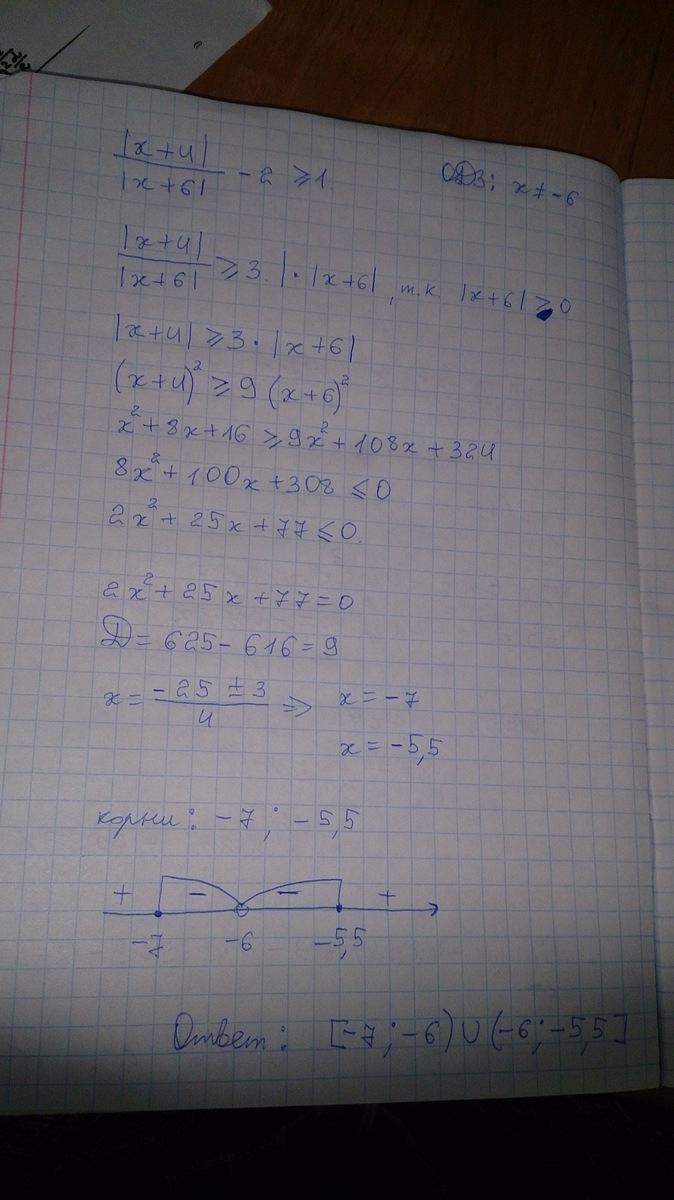 |x+4| / |x+6| - 2 ⩾ 1
ОДЗ: x ≠ -6
|x+4| / |x+6| ⩾ 3. | · |x+6| , т.к. |x+6| > 0
|x+4| ⩾ 3 · |x+6|
(x+4)² ⩾ 9 (x+6)²
x² + 8x + 16 ⩾ 9x² + 108x + 324
8x² + 100x + 308 ⩽ 0
2x² + 25x + 77 ⩽ 0.
2x² + 25x + 77 = 0
D = 625 - 616 = 9
x = (-25 ± 3) / 4 => x = -7
x = -5,5
корни: -7 ; -5,5
+ - - +
-7 -6 -5,5
Ответ: [-7 ; -6) ∪ (-6 ; -5,5]